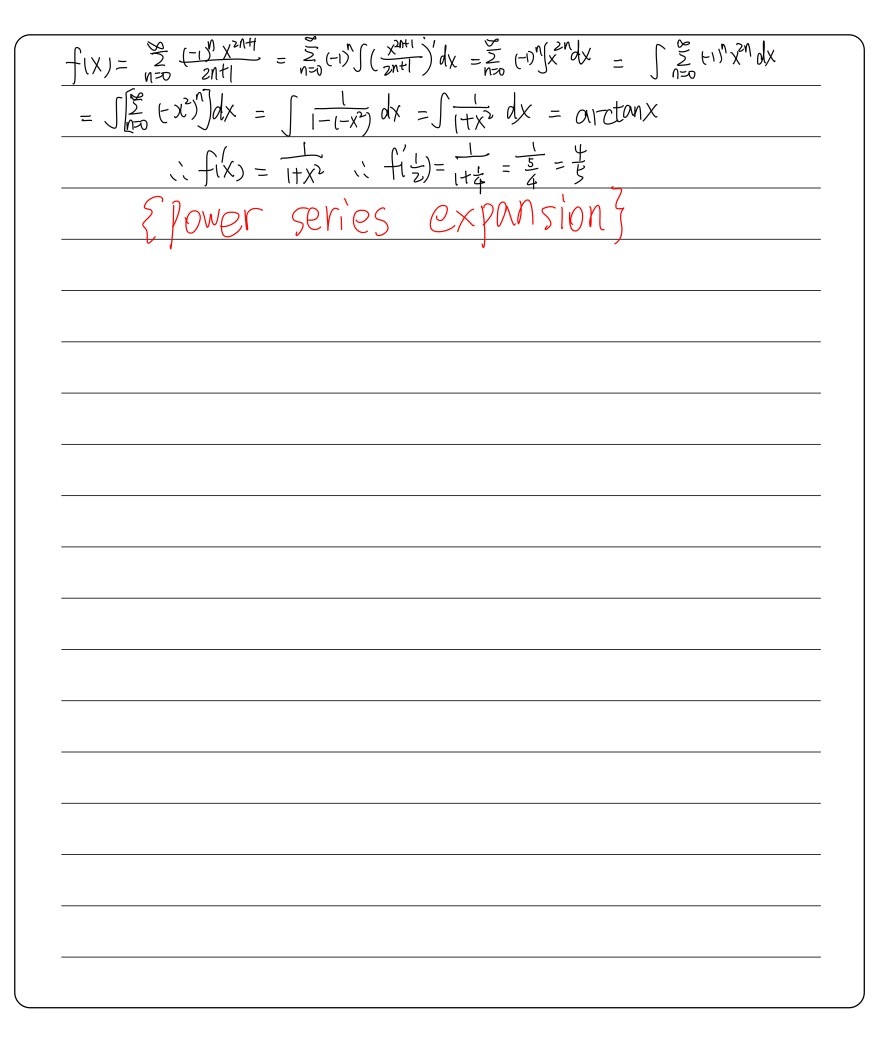 f(x) = ∑_{n=0}^{∞} (-1)^n x^{2n+1} / 2n+1 = ∑_{n=0}^{∞} (-1)^n ∫ (x^{2n+1} / 2n+1)' dx = ∑_{n=0}^{∞} (-1)^n ∫ x^{2n} dx = ∫ ∑_{n=0}^{∞} (-1)^n x^{2n} dx
= ∫ [∑_{n=0}^{∞} (-x²)^n] dx = ∫ 1 / 1-(-x²) dx = ∫ 1 / 1+x² dx = arctanx
∴ f'(x) = 1 / 1+x² ∴ f'(1/2) = 1 / 1+1/4 = 1 / 5/4 = 4/5
{power series expansion}